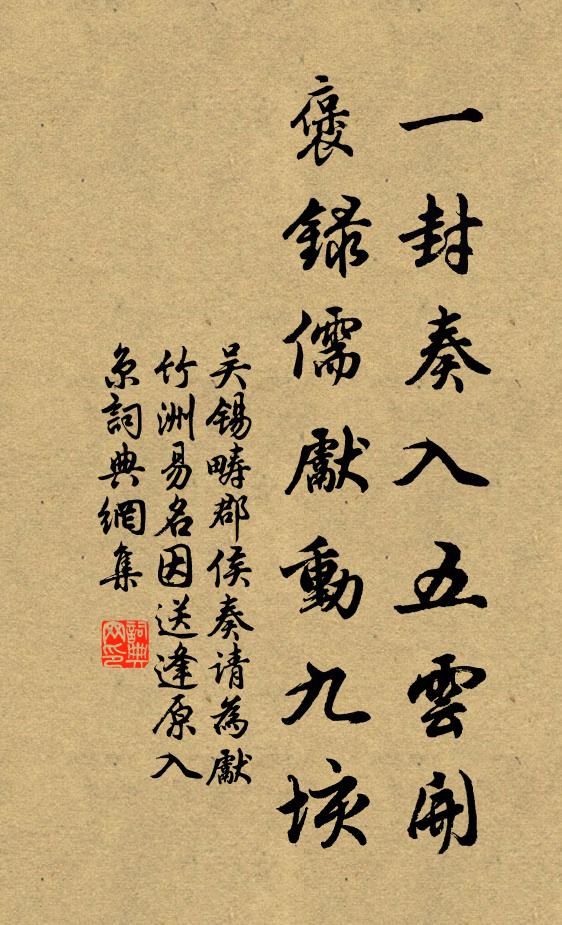 一封奏入五雲開
褒錄儒獻動九垓
吴锡疇郡侯奏请為獻
竹洲易名因送逢原入
京詞典網集
詞典網印